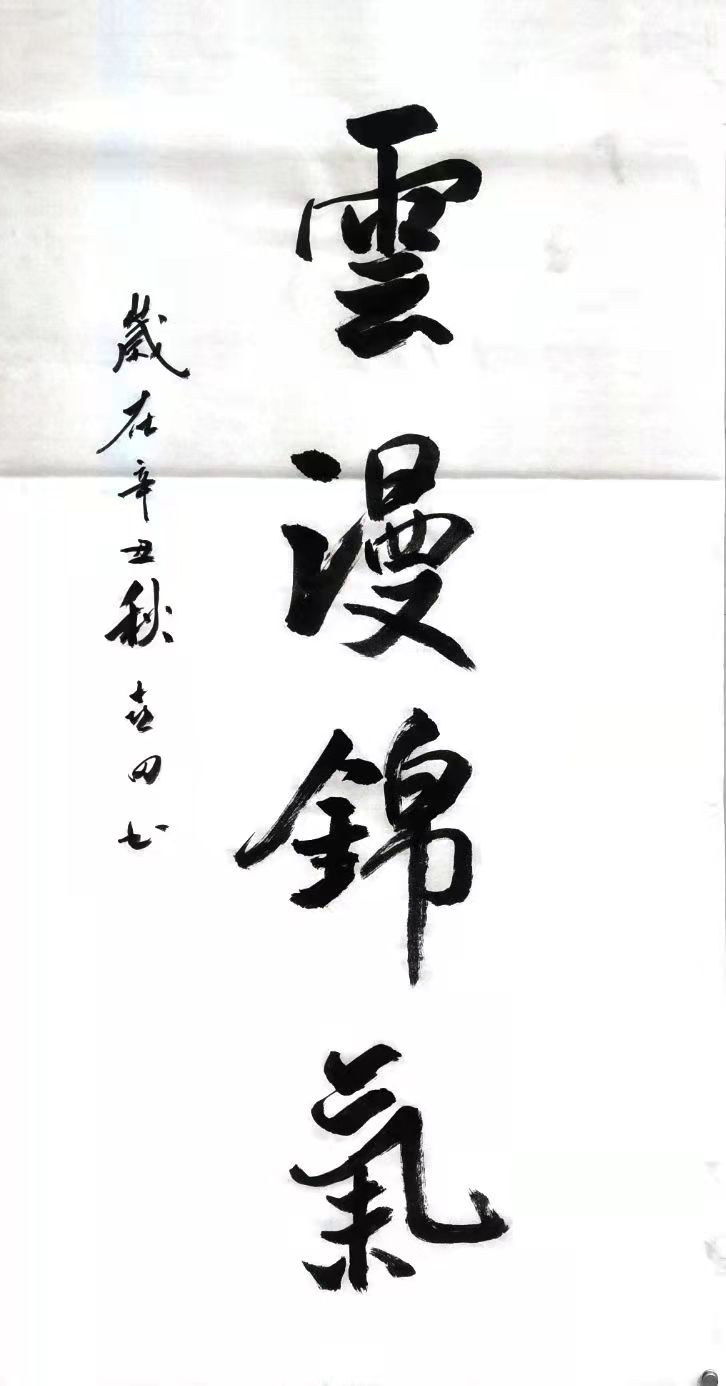 雲漫錦氣
歲在辛丑秋喜田书